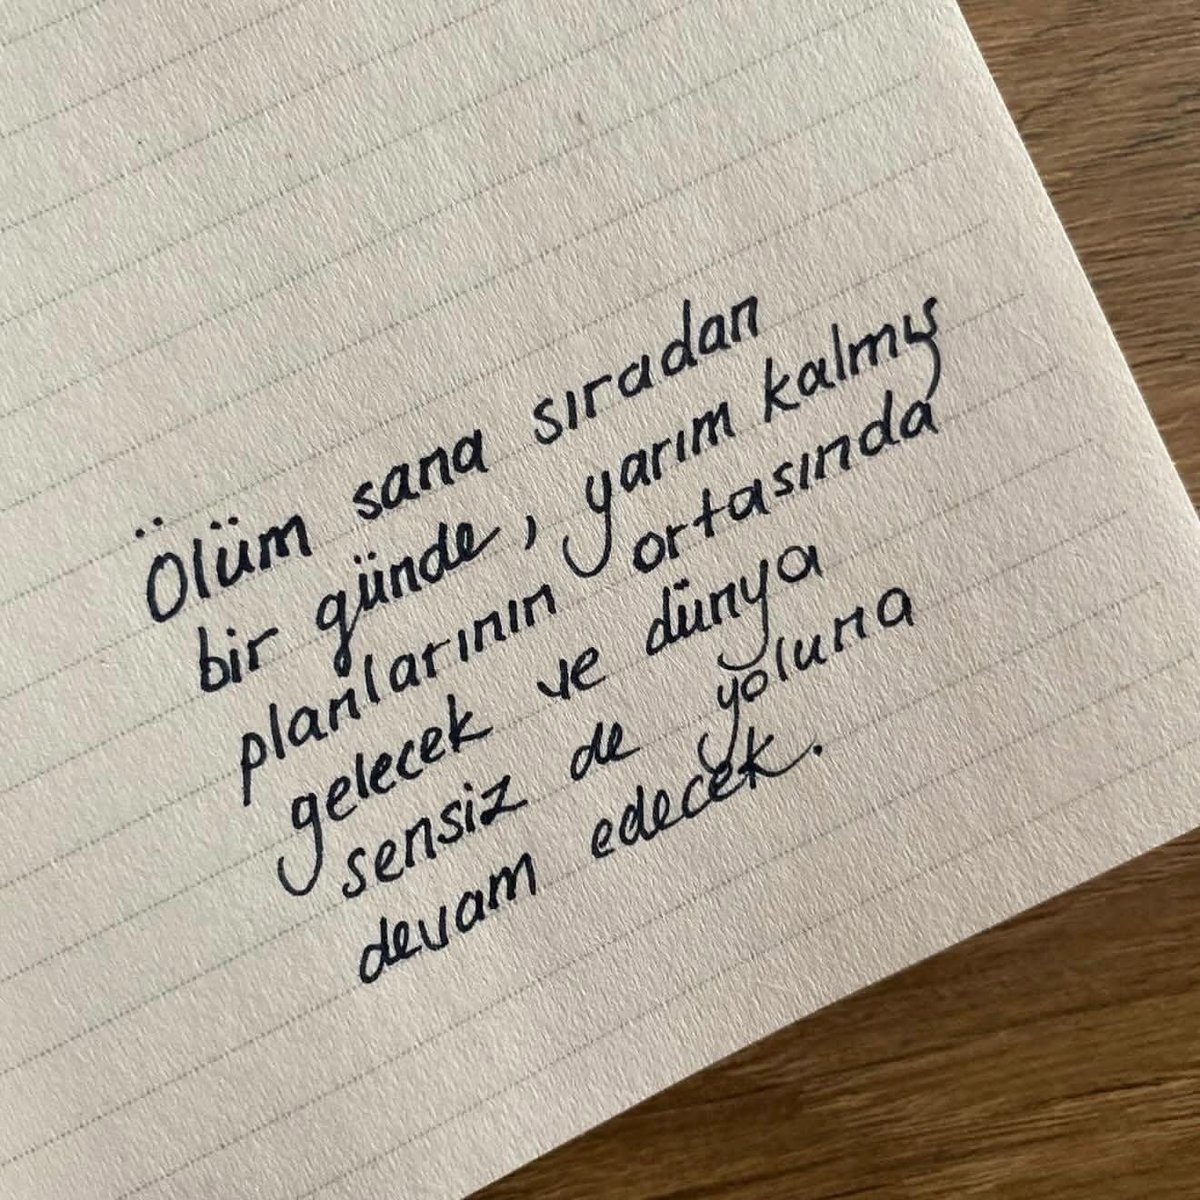 Ölüm sana sıradan
bir günde, yarım kalmış
planlarının ortasında
gelecek ve dünya
sensiz de yoluna
devam edecek.